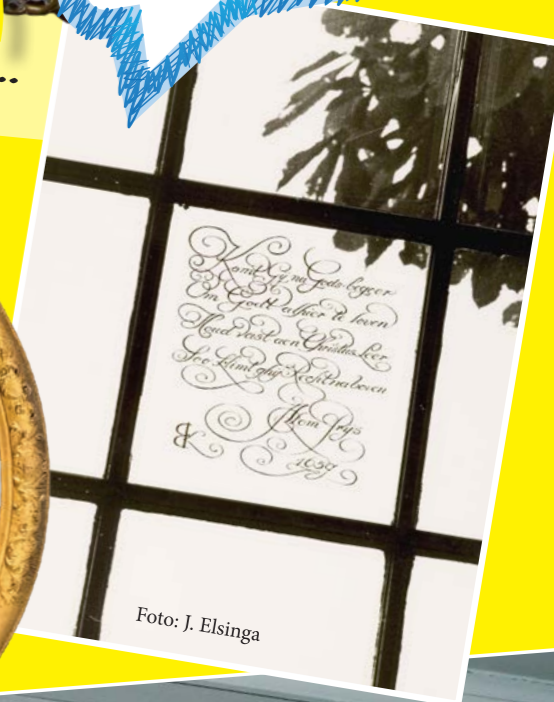 Komt Gy, na Gods begeer
Om Godt alhier te loven
Houd vast aen Christus Leer
Soo klimt ghy Recht na boven
Atom frys
1659
Foto: J. Elsinga